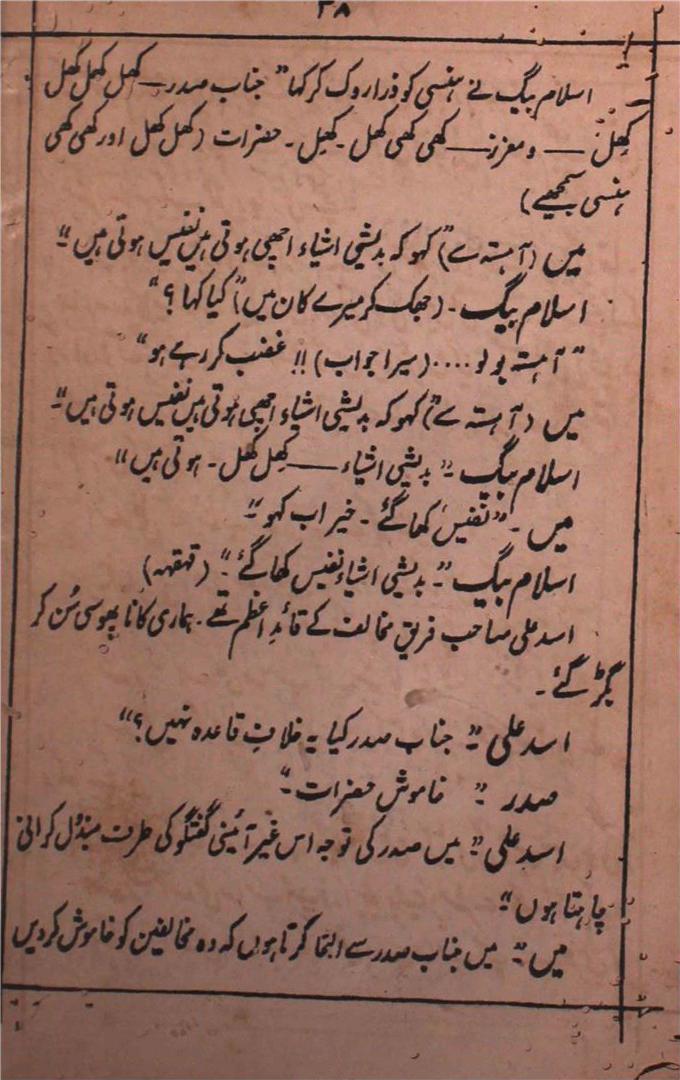 ۳۸
اسلام بیگ نے ہنسی کو ذرا روک کر کہا "جناب صدر — کھل کھل کھل
کھل — و معزز — کھی کھی کھل۔ کھل۔ حضرات (کھل کھل اور کھی کھی
ہنسی سمجھیے)
میں (آہستہ سے) "کہو کہ بدیشی اشیاء اچھی ہوتی ہیں نفیس ہوتی ہیں"
اسلام بیگ۔ (جھک کر میرے کان میں) "کیا کہا؟"
"آہستہ بولو.... (میرا جواب) !! غضب کر رہے ہو"
میں (آہستہ سے) "کہو کہ بدیشی اشیاء اچھی ہوتی ہیں نفیس ہوتی ہیں"
اسلام بیگ۔ "بدیشی اشیاء — کھل کھل۔ ہوتی ہیں"
میں۔ "نفیس کھا گئے۔ خیر اب کہو"
اسلام بیگ۔ "بدیشی اشیاء نفیس کھا گئے۔" (قہقہہ)
اسد علی صاحب فریق مخالف کے قائدِ اعظم تھے۔ ہماری کانا پھوسی سُن کر
بگڑ گئے۔
اسد علی۔ "جناب صدر کیا یہ خلافِ قاعدہ نہیں؟"
صدر۔ "خاموش حضرات۔"
اسد علی۔ "میں صدر کی توجہ اس غیر آئینی گفتگو کی طرف مبذول کرانی
چاہتا ہوں۔"
میں۔ "میں جناب صدر سے التجا کرتا ہوں کہ وہ مخالفین کو خاموش کر دیں